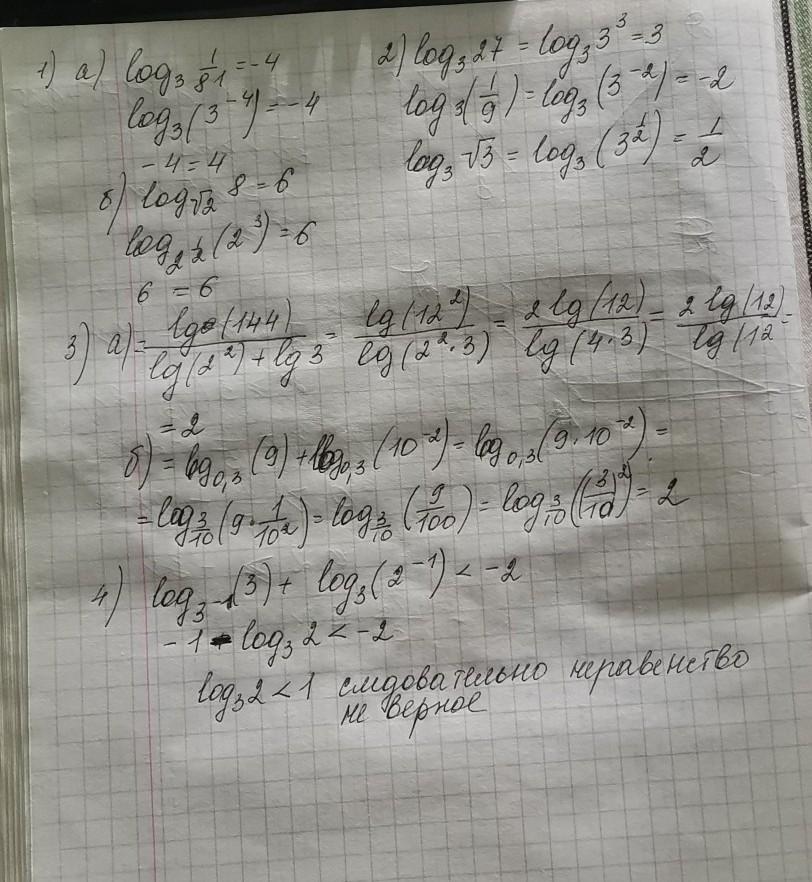 1) а) log₃ 1/81 = -4
log₃(3⁻⁴) = -4
-4 = 4
б) log_√2 8 = 6
log_2^(1/2) (2³) = 6
6 = 6
2) log₃27 = log₃3³ = 3
log₃(1/9) = log₃(3⁻²) = -2
log₃√3 = log₃(3^(1/2)) = 1/2
3) а) = lg(144)/(lg(2²) + lg3) = lg(12²)/lg(2²·3) = 2lg(12)/lg(4·3) = 2lg(12)/lg(12 =
= 2
б) = log₀,₃(9) + log₀,₃(10⁻²) = log₀,₃(9·10⁻²) =
= log_3/10 (9·1/10²) = log_3/10 (9/100) = log_3/10 ((3/10)²) = 2
4) log_3⁻¹(3) + log₃(2⁻¹) < -2
-1 - log₃2 < -2
log₃2 < 1 следовательно неравенство
не верное